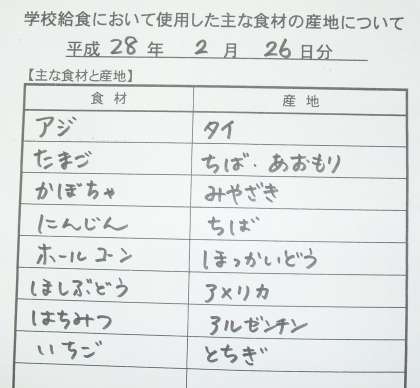 学校給食において使用した主な食材の産地について
平成 28 年 2 月 26 日分
【主な食材と産地】
食材 産地
アジ タイ
たまご ちば・あおもり
かぼちゃ みやざき
にんじん ちば
ホールコーン ほっかいどう
ほしぶどう アメリカ
はちみつ アルゼンチン
いちご とちぎ